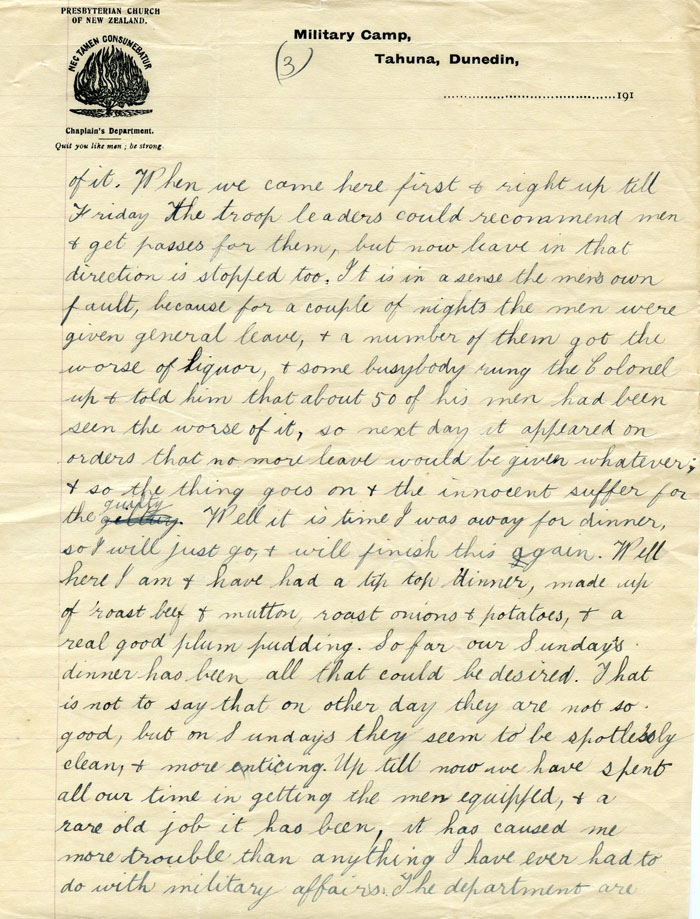 PRESBYTERIAN CHURCH
OF NEW ZEALAND.
NEC TAMEN CONSUMEBATUR
Chaplain's Department.
Quit you like men ; be strong.
Military Camp,
Tahuna, Dunedin,
(3)
..........................................191
of it. When we came here first & right up till
Friday the troop leaders could recommend men
& get passes for them, but now leave in that
direction is stopped too. It is in a sense the mens own
fault, because for a couple of nights the men were
given general leave, & a number of them got the
worse of liquor, & some busybody rung the Colonel
up & told him that about 50 of his men had been
seen the worse of it, so next day it appeared on
orders that no more leave would be given whatever;
& so the thing goes on & the innocent suffer for
the guilty. Well it is time I was away for dinner,
so I will just go, & will finish this again. Well
here I am & have had a tip top dinner, made up
of roast beef & mutton, roast onions & potatoes, & a
real good plum pudding. So far our Sunday's
dinner has been all that could be desired. That
is not to say that on other day they are not so
good, but on Sundays they seem to be spotlessly
clean, & more enticing. Up till now we have spent
all our time in getting the men equipped, & a
rare old job it has been, it has caused me
more trouble than anything I have ever had to
do with military affairs. The department are